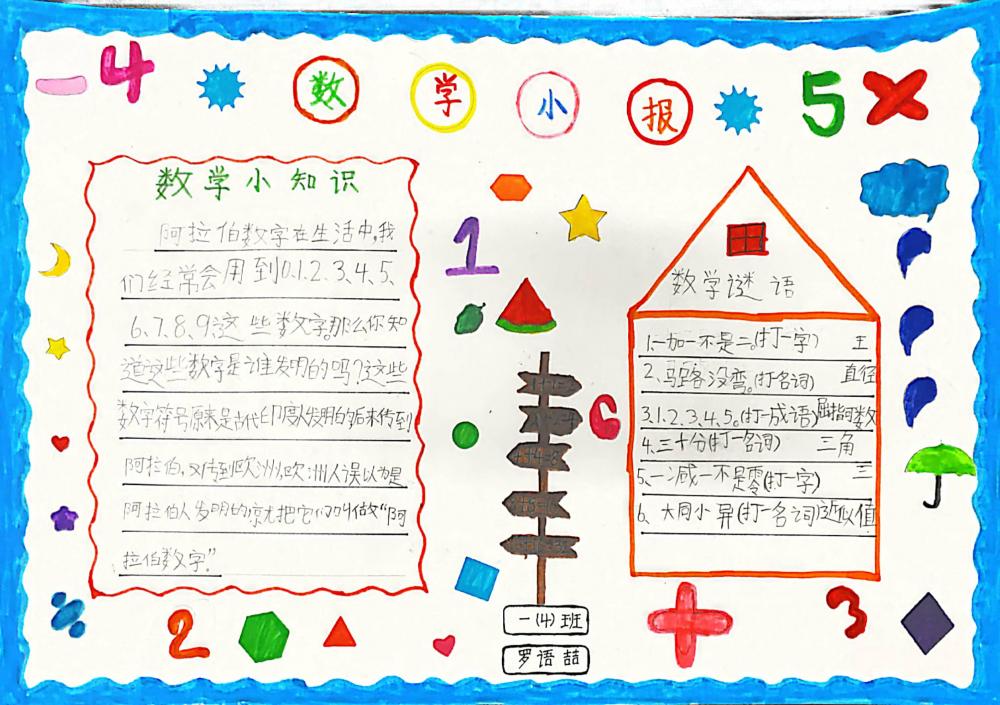 -4
数学小报
5×
数学小知识
阿拉伯数字在生活中,我
们经常会用到0.1.2.3.4.5、
6、7.8、9这些数字。那么你知
道这些数字是谁发明的吗?这些
数字符号原来是古代印度人发明的,后来传到
阿拉伯,又传到欧洲,欧洲人误以为是
阿拉伯人发明的,就把它们叫做“阿
拉伯数字”
1
6
数学谜语
1、一加一不是二。(打一字) 王
2、马路没弯。(打名词) 直径
3.1.2、3、4、5。(打一成语)屈指可数
4.三十分(打一名词) 三角
5、一减一不是零(打一字) 三
6、大同小异(打一名词)近似值
÷
2
+
3
一(4)班
罗语喆